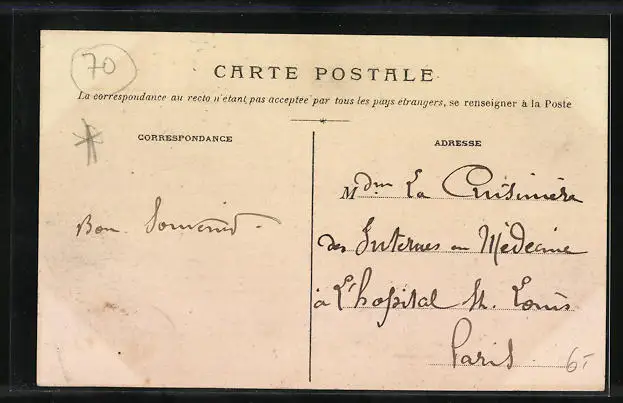 70
CARTE POSTALE
La correspondance au recto n'étant pas acceptée par tous les pays étrangers, se renseigner à la Poste
CORRESPONDANCE
ADRESSE
Mdm La Cuisinière
des Internes en Médecine
à L'hopital St. Louis
Paris
Bon Souvenir.
6-